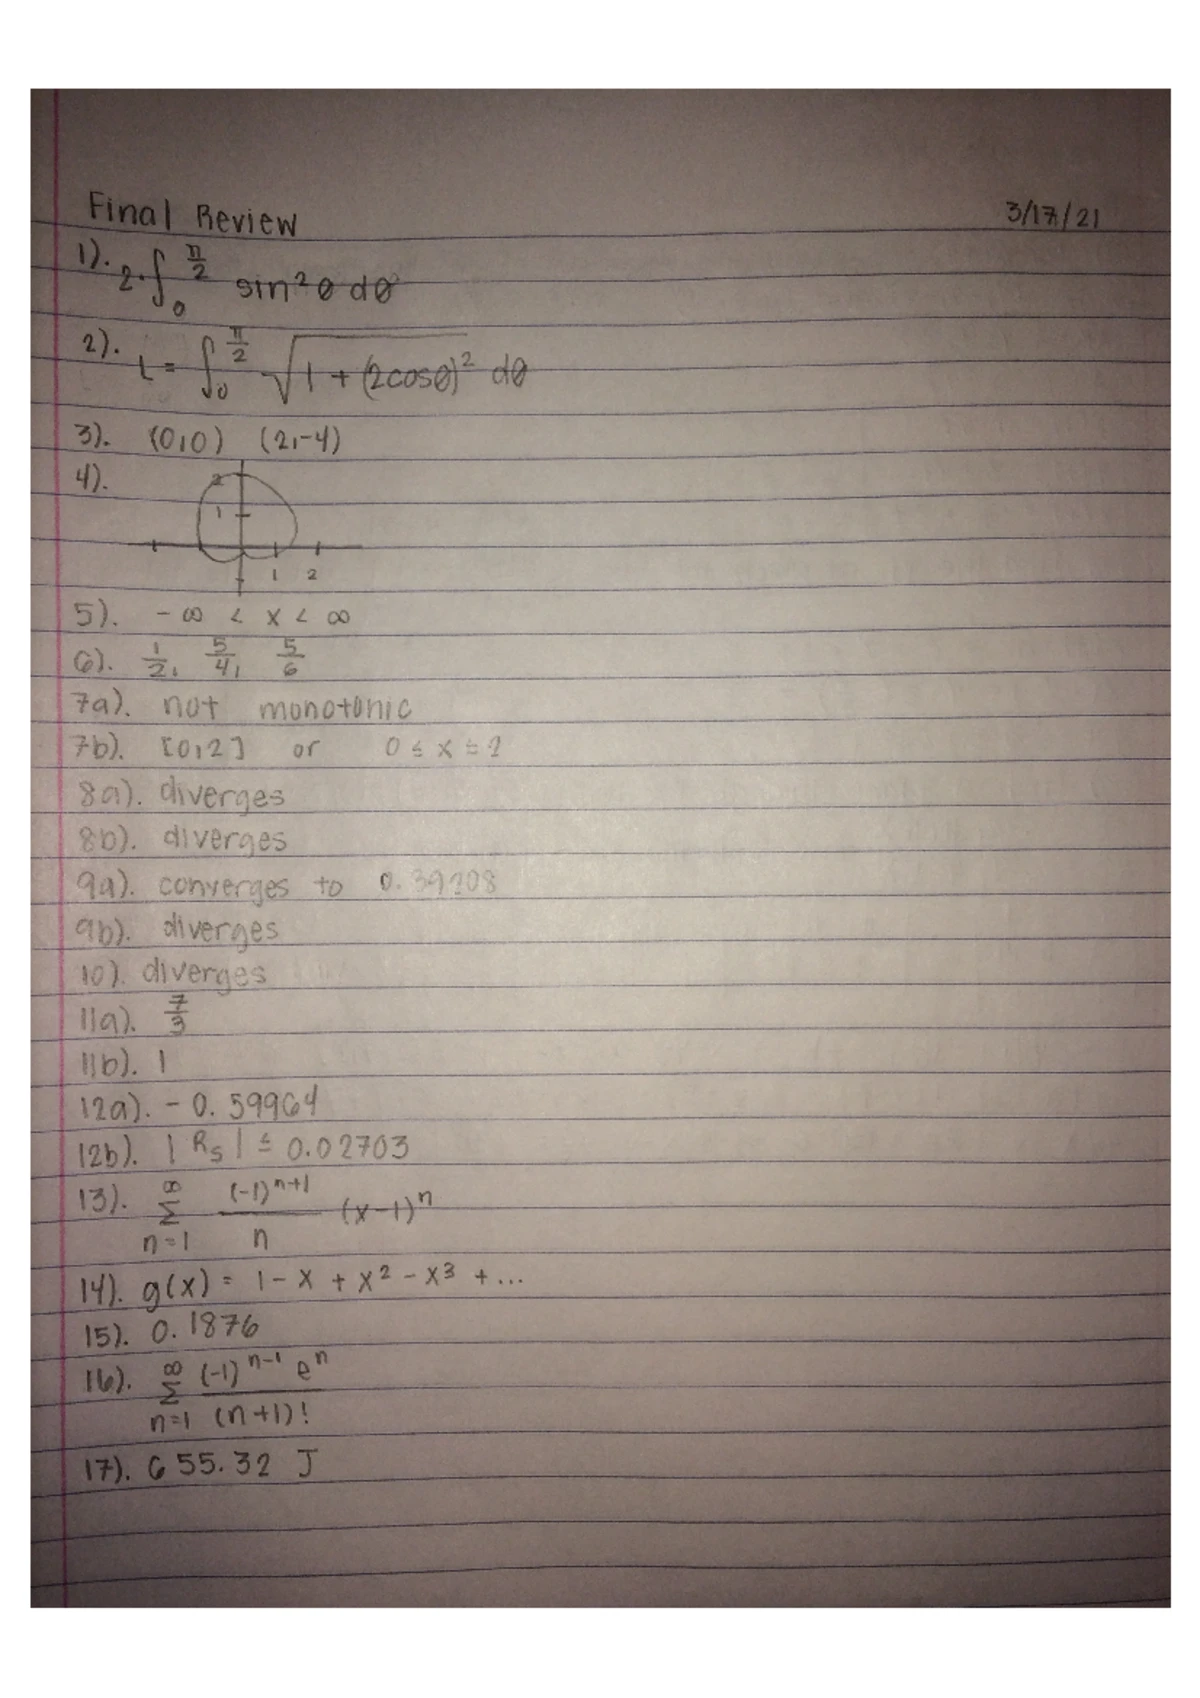 Final Review 3/17/21
1). 2·∫₀^(π/2) sin²θ dθ
2). L = ∫₀^(π/2) √(1 + (2cosθ)²) dθ
3). (0,0) (2,-4)
4). 2 1 1 2
5). -∞ < x < ∞
6). 1/2, 5/4, 5/6
7a). not monotonic
7b). [0,2] or 0 ≤ x ≤ 2
8a). diverges
8b). diverges
9a). converges to
9b). diverges
10). diverges
11a). 7/3
11b). 1
12a). -0.59964
12b). |R₅| ≤ 0.02703
13). ∞Σn=1 (-1)ⁿ⁺¹/n (x-1)ⁿ
14). g(x) = 1 - x + x² - x³ + ...
15). 0.1876
16). ∞Σn=1 (-1)ⁿ⁻¹ eⁿ/(n+1)!
17). 655.32 J